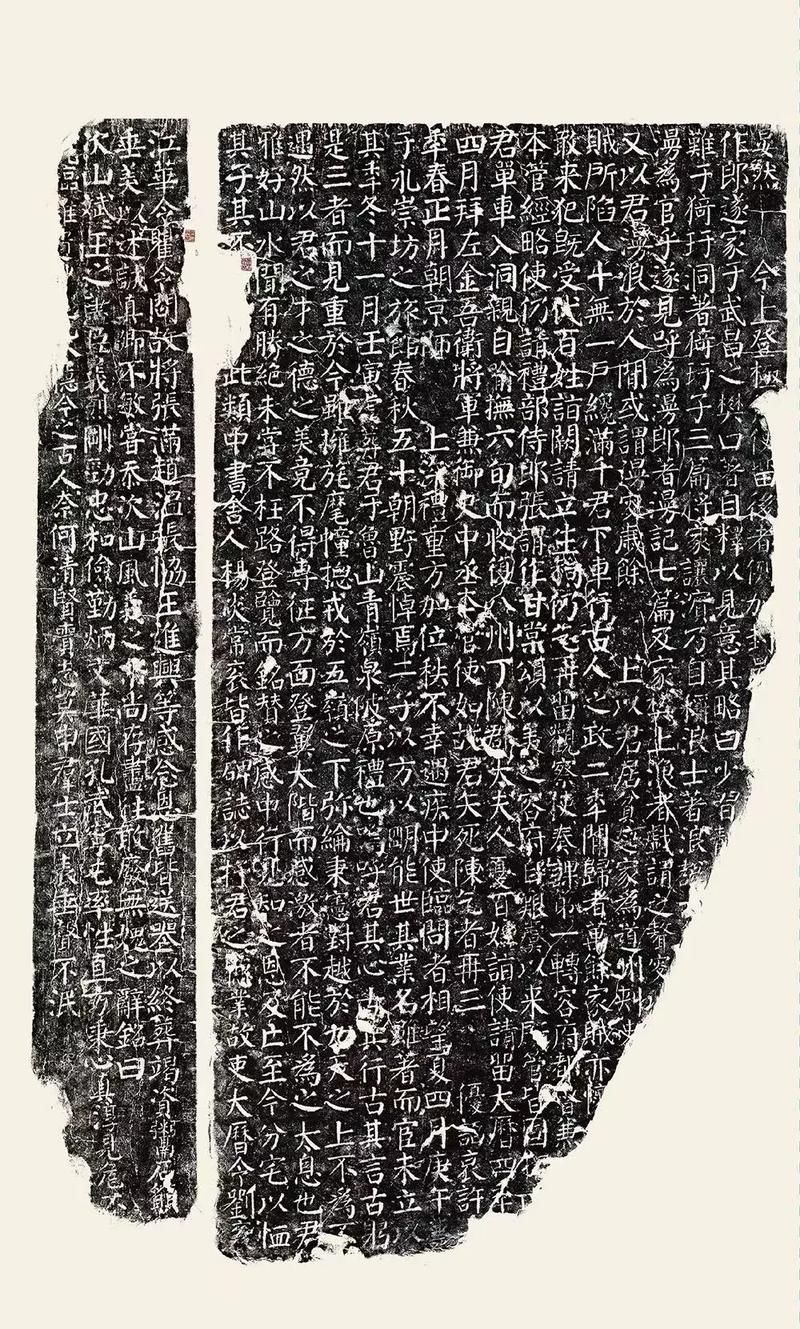 晏然 今上登極 後留後者例加封
作郎遂家于武昌之樊口著自釋以見意其略曰少習
難于猗玗洞著猗玗子三篇將家讓濱乃自稱浪士著浪說
漫為官乎遂見呼為漫郎著漫記七篇及家樊上漁者戲謂之聱叟
又以君漫浪於人間或謂漫叟歲餘 上以君居貧起家為道州刺史
賊所陷人十無一戶纔滿千君下車行古人之政二年間歸者萬餘家賊亦懷
敢来犯既受代百姓詣闕請立生祠仍乞再留觀察使奏課第一轉容府都督兼
本管經略使仍請禮部侍郎張謂作甘棠頌以美之容府自艱虞以来所管皆固
君單車入洞親自喻撫六旬而收復八州丁陳郡太夫人憂百姓詣使請留大曆四年
四月拜左金吾衛將軍兼御史中丞本管使如故君矢死陳乞者再三 優詔哀許
年春正月朝京師 上深禮重方加位秩不幸遇疾中使臨問者相望夏四月庚午
于永崇坊之旅館春秋五十朝野震悼焉二子以方以明能世其業名雖著而官未立以
其年冬十一月壬寅虔葬君于魯山青嶺泉陂原禮也嗚呼君其心古其行古其言古躬
是三者而見重於今雖擁旄麾幢揔戎於五嶺之下弥綸秉憲對越於九天之上不為不
遇然以君之才之德之美竟不得專征方面登翼太階而感激者不能不為之太息也君
雅好山水聞有勝絕未嘗不枉路登覽而銘贊之感中行見知之恩及亡至今分宅以恤
其子其不 此類中書舍人楊炎常衮皆作碑誌以抒君之德業故吏大曆令劉衮
江華令瞿令問故將張滿趙温張協王進興等感念恩舊皆送塟以終葬竭資鬻石願
垂美以述誠真卿不敏嘗忝次山風義之末尚存盡往敢廢無愧之辭銘曰
次山斌王之藎臣義烈剛勁忠和儉勤炳文華國孔武寧屯率性直方秉心真淳見危不
臨難 德今之古人奈何清賢賫志莫申羣士立表垂聲不泯